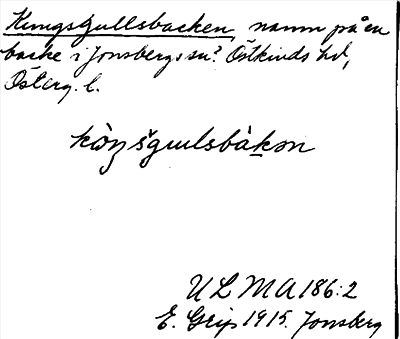 Kungsgullsbacken, namn på en
backe i Jonsbergs sn? Östkinds hd,
Österg. l.
kòŋsgɯlsbàkən
ULMA 186:2
E. Grip 1915. Jonsberg